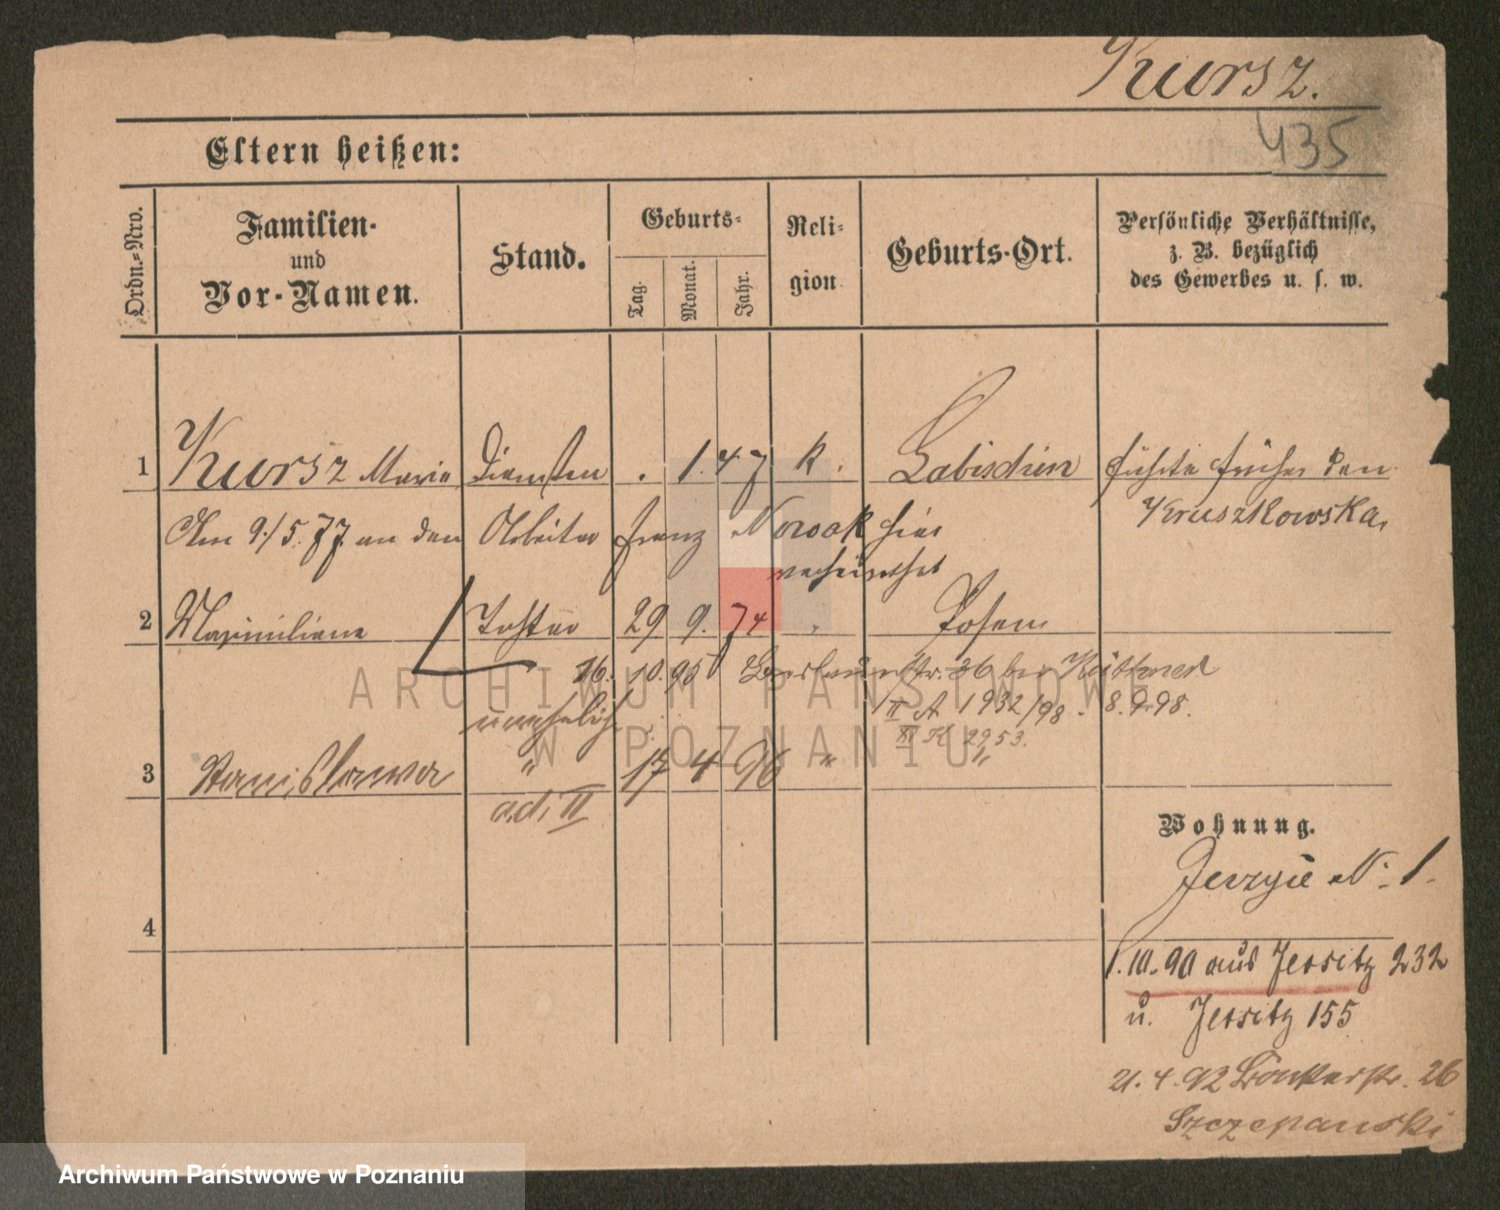 Kursz.
435
Eltern heißen:
Ordn.-Nro.
Familien- und Vor-Namen.
Stand.
Geburts-
Tag.
Monat.
Jahr.
Religion
Geburts-Ort.
Persönliche Verhältnisse, z. B. bezüglich des Gewerbes u. s. w.
1 Kursz Marie . 1. 47 k. Labischin führte früher den
Kruszkowska,
Am 9/5. 77. an den Arbeiter Franz Nowak hier
verheirathet
2 Maximiliane Tochter 29 9. 74 " Posen
16. 10. 95 36 bei Küttner
unehelich II A 1932/98. 8.9.98.
II K 2953.
3 Stanislawa " 17 4 96 " "
ad. II
Wohnung.
Jerzyce N. 1.
4
1. 10. 90 aus Jersitz 232
u. Jersitz 155
21. 4. 92 26
Szczepanski
ARCHIWUM PAŃSTWOWE
W POZNANIU
Archiwum Państwowe w Poznaniu